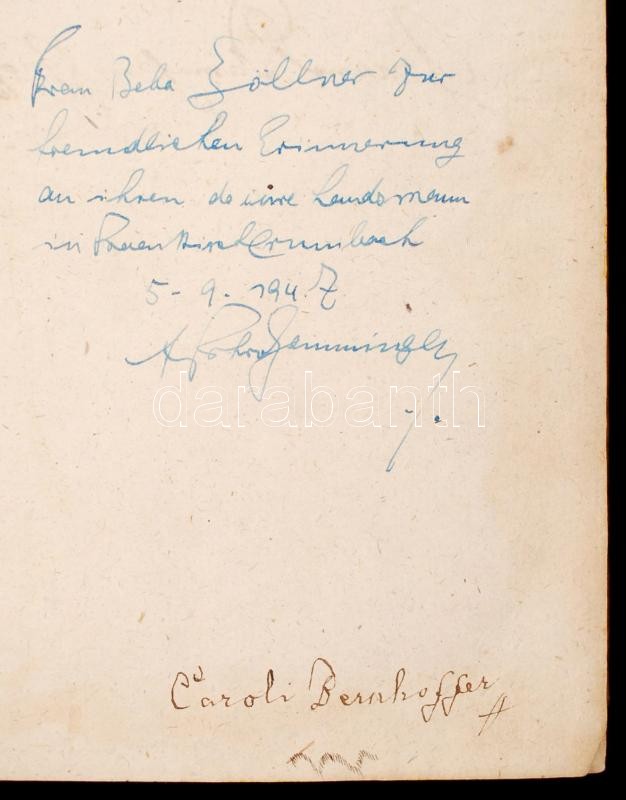 Frau Beba Zöllner zur
freundlichen Erinnerung
an ihren Landsmann
in
5-9. 1947
darabanth
Caroli Bernhoffer